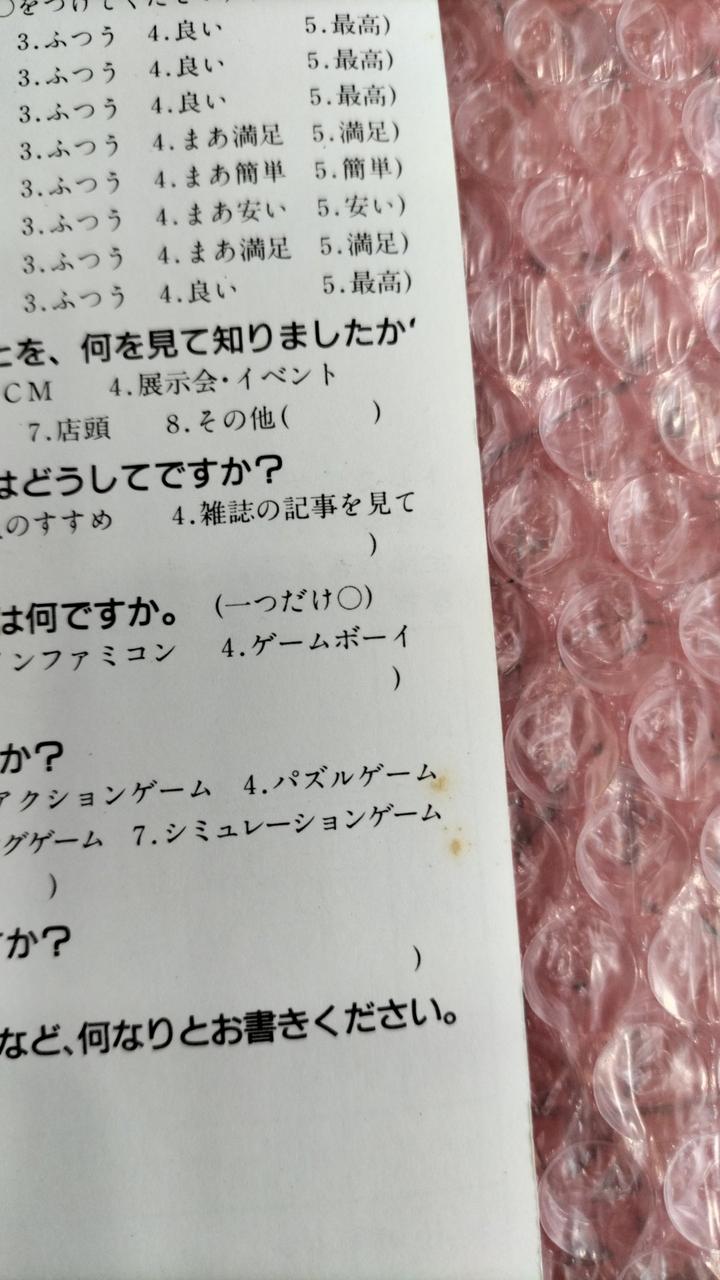 ○をつけてください
3.ふつう 4.良い 5.最高)
3.ふつう 4.良い 5.最高)
3.ふつう 4.良い 5.最高)
3.ふつう 4.まあ満足 5.満足)
3.ふつう 4.まあ簡単 5.簡単)
3.ふつう 4.まあ安い 5.安い)
3.ふつう 4.まあ満足 5.満足)
3.ふつう 4.良い 5.最高)
とを、何を見て知りましたか
CM 4.展示会・イベント
7.店頭 8.その他( )
はどうしてですか?
のすすめ 4.雑誌の記事を見て
)
は何ですか。 (一つだけ○)
ンファミコン 4.ゲームボーイ
)
か?
アクションゲーム 4.パズルゲーム
グゲーム 7.シミュレーションゲーム
)
か?
)
など、何なりとお書きください。